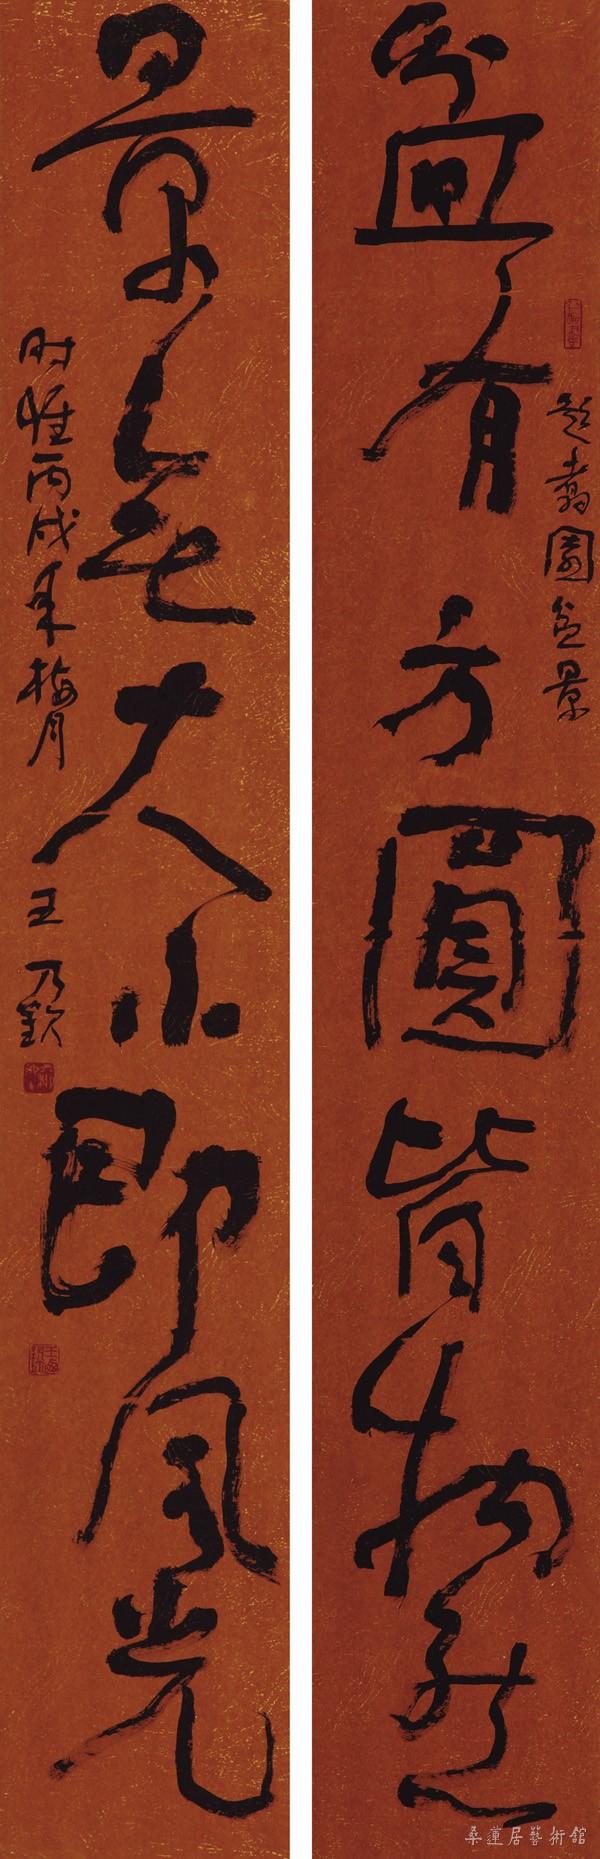 盆有方圓皆物態
題翥園盆景
景無大小即風光
时惟丙戌年梅月
王乃欽
桑蓮居藝術館